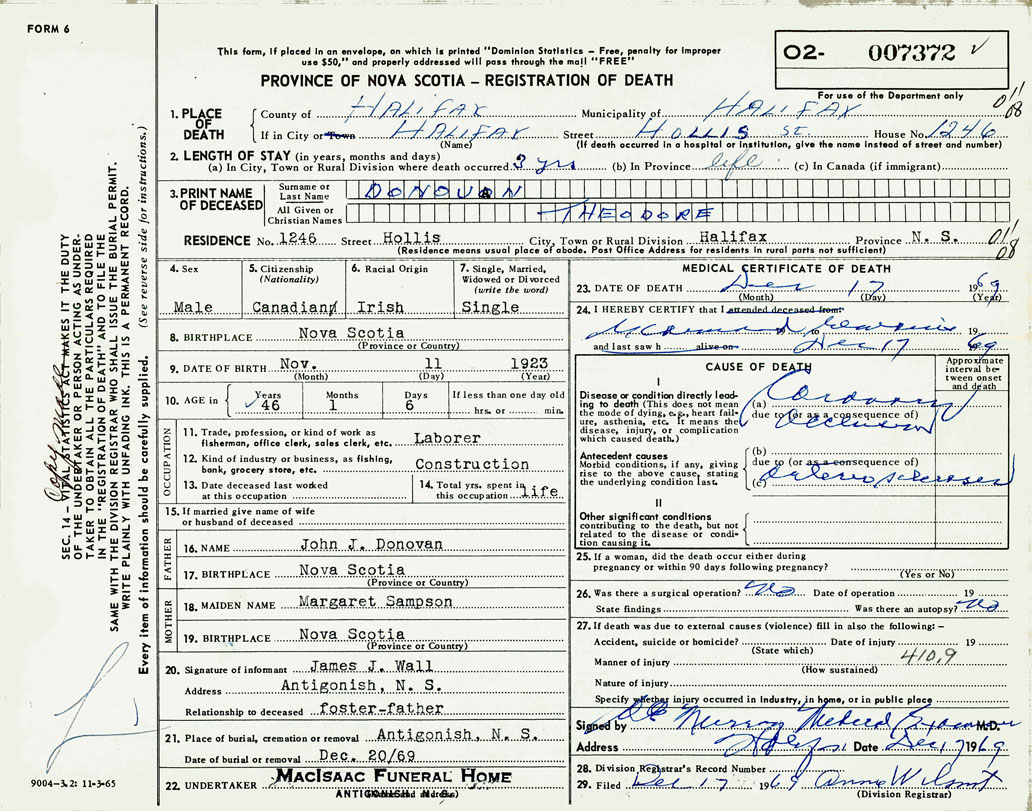 FORM 6
This form, if placed in an envelope, on which is printed "Dominion Statistics – Free, penalty for improper
use $50," and properly addressed will pass through the mail "FREE"
PROVINCE OF NOVA SCOTIA – REGISTRATION OF DEATH
02- 007372 ✓
For use of the Department only
1. PLACE OF DEATH
County of HALIFAX Municipality of HALIFAX
If in City or Town HALIFAX Street HOLLIS ST. House No. 1246
(Name) (If death occurred in a hospital or institution, give the name instead of street and number)
2. LENGTH OF STAY (in years, months and days)
(a) In City, Town or Rural Division where death occurred 3 yrs (b) In Province life (c) In Canada (if immigrant)
3. PRINT NAME OF DECEASED
Surname or Last Name DONOVAN
All Given or Christian Names THEODORE
RESIDENCE No. 1246 Street Hollis City, Town or Rural Division Halifax Province N. S.
(Residence means usual place of abode. Post Office Address for residents in rural parts not sufficient)
011
08
011
08
4. Sex
Male
5. Citizenship
(Nationality)
Canadian
6. Racial Origin
Irish
7. Single, Married,
Widowed or Divorced
(write the word)
Single
8. BIRTHPLACE Nova Scotia
(Province or Country)
9. DATE OF BIRTH Nov. 11 1923
(Month) (Day) (Year)
10. AGE in Years Months Days If less than one day old
46 1 6 hrs. or min.
OCCUPATION
11. Trade, profession, or kind of work as
fisherman, office clerk, sales clerk, etc. Laborer
12. Kind of industry or business, as fishing,
bank, grocery store, etc. Construction
13. Date deceased last worked
at this occupation
14. Total yrs. spent in
this occupation life
15. If married give name of wife
or husband of deceased
FATHER
16. NAME John J. Donovan
17. BIRTHPLACE Nova Scotia
(Province or Country)
MOTHER
18. MAIDEN NAME Margaret Sampson
19. BIRTHPLACE Nova Scotia
(Province or Country)
20. Signature of informant James J. Wall
Address Antigonish, N. S.
Relationship to deceased foster-father
21. Place of burial, cremation or removal Antigonish, N. S.
Date of burial or removal Dec. 20/69
22. UNDERTAKER MACISAAC FUNERAL HOME
ANTIGONISH, N. S.
MEDICAL CERTIFICATE OF DEATH
23. DATE OF DEATH Dec 17 1969
(Month) (Day) (Year)
24. I HEREBY CERTIFY that I attended deceased from
to 19
and last saw h alive on Dec 17 1969
CAUSE OF DEATH
Approximate
interval be-
tween onset
and death
I
Disease or condition directly lead-
ing to death (This does not mean
the mode of dying, e.g., heart fail-
ure, asthenia, etc. It means the
disease, injury, or complication
which caused death.)
(a) Coronary
due to (or as a consequence of)
Occlusion
Antecedent causes
Morbid conditions, if any, giving
rise to the above cause, stating
the underlying condition last.
(b)
due to (or as a consequence of)
(c) Arteriosclerosis
II
Other significant conditions
contributing to the death, but not
related to the disease or condi-
tion causing it.
25. If a woman, did the death occur either during
pregnancy or within 90 days following pregnancy?
(Yes or No)
26. Was there a surgical operation? No Date of operation 19
State findings Was there an autopsy? No
27. If death was due to external causes (violence) fill in also the following: –
Accident, suicide or homicide? Date of injury 19
(State which)
Manner of injury 410.9
(How sustained)
Nature of injury
Specify whether injury occurred in industry, in home, or in public place
Signed by Murray Medical Examiner M.D.
Address Halifax Date Dec 17 1969
28. Division Registrar's Record Number
29. Filed Dec 17 1969
(Division Registrar)
SEC. 14 – VITAL STATISTICS ACT MAKES IT THE DUTY
OF THE UNDERTAKER OR PERSON ACTING AS UNDER-
TAKER TO OBTAIN ALL THE PARTICULARS REQUIRED
IN THE "REGISTRATION OF DEATH" AND TO FILE THE
SAME WITH THE DIVISION REGISTRAR WHO SHALL ISSUE THE BURIAL PERMIT.
WRITE PLAINLY WITH UNFADING INK. THIS IS A PERMANENT RECORD.
Every item of information should be carefully supplied. (See reverse side for instructions.)
9004–3.2: 11-3-65